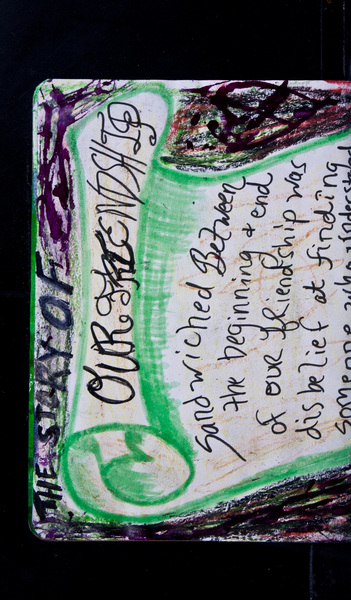 THE STORY OF
OUR FRIENDSHIP
Sandwiched Between
the beginning & end
of our friendship was
disbelief at finding
someone who understood